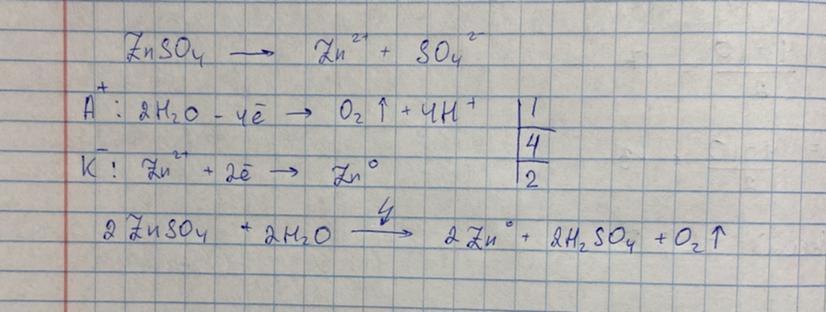 ZnSO₄ → Zn²⁺ + SO₄²⁻
A⁺: 2H₂O - 4ē → O₂↑ + 4H⁺ | 1
4
K⁻: Zn²⁺ + 2ē → Zn⁰ | 2
2ZnSO₄ + 2H₂O →↯ 2Zn⁰ + 2H₂SO₄ + O₂↑